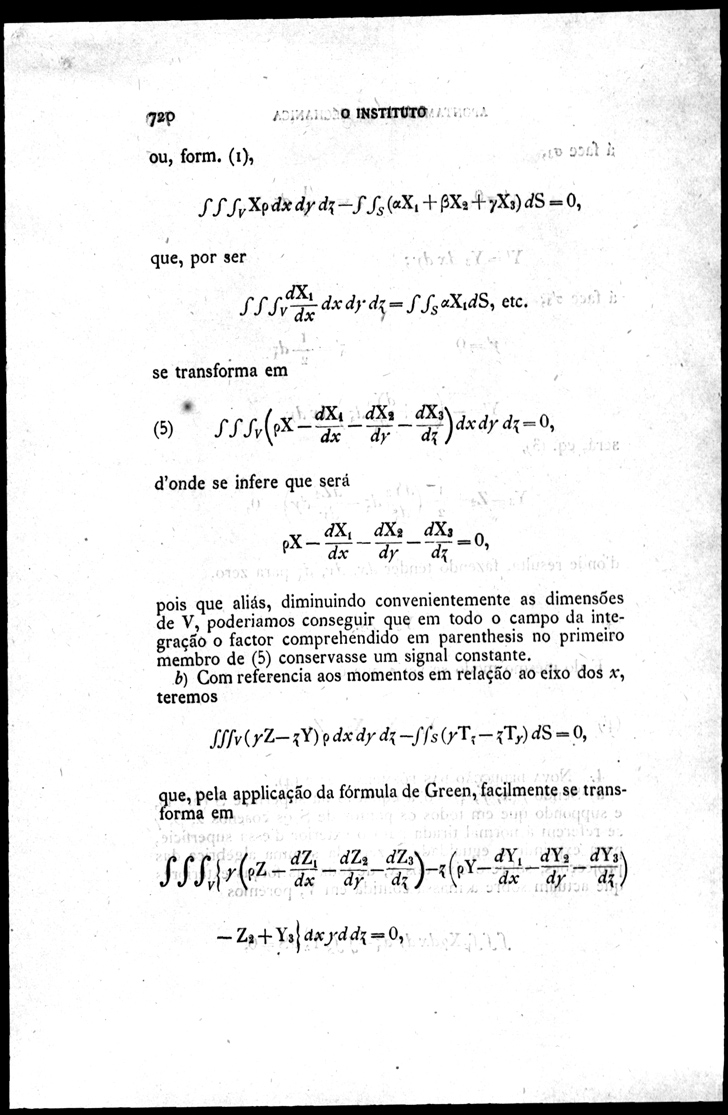 720 O INSTITUTO
ou, form. (1),
∫∫∫_V Xρ dx dy dz — ∫∫_S (αX₁ + βX₂ + γX₃) dS = 0,
que, por ser
∫∫∫_V dX₁/dx dx dy dz = ∫∫_S αX₁dS, etc.
se transforma em
(5) ∫∫∫_V (ρX — dX₁/dx — dX₂/dy — dX₃/dz) dx dy dz = 0,
d'onde se infere que será
ρX — dX₁/dx — dX₂/dy — dX₃/dz = 0,
pois que aliás, diminuindo convenientemente as dimensões
de V, poderiamos conseguir que em todo o campo da inte-
gração o factor comprehendido em parenthesis no primeiro
membro de (5) conservasse um signal constante.
b) Com referencia aos momentos em relação ao eixo dos x,
teremos
∫∫∫_V (yZ — zY) ρ dx dy dz — ∫∫_S (yT_z — zT_y) dS = 0,
que, pela applicação da fórmula de Green, facilmente se trans-
forma em
∫∫∫_V {y (ρZ — dZ₁/dx — dZ₂/dy — dZ₃/dz) — z (ρY — dY₁/dx — dY₂/dy — dY₃/dz)
— Z₂ + Y₃} dx yd dz = 0,